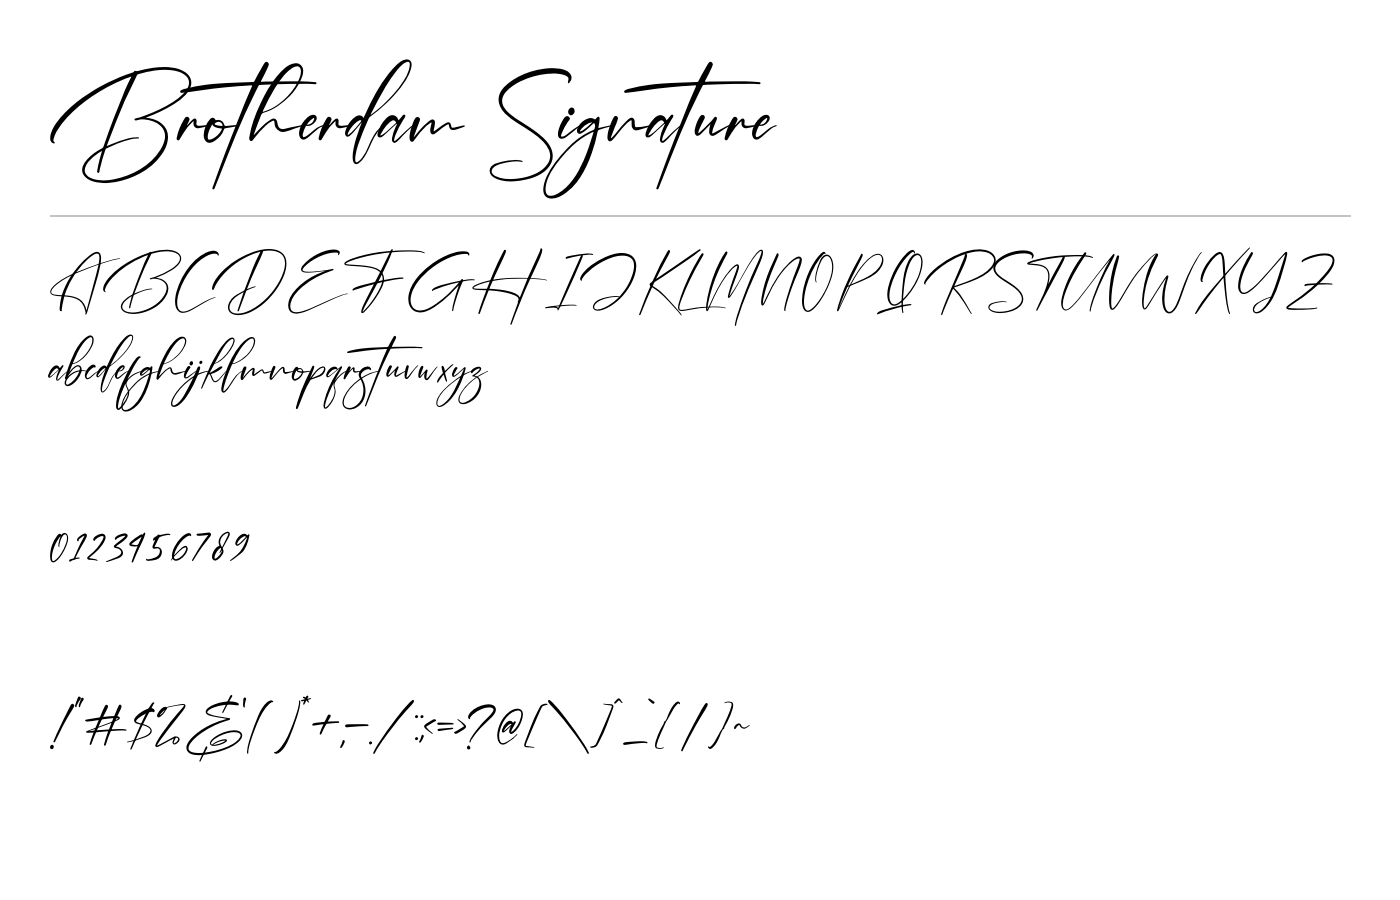 Brotherdam Signature
ABCDEFGHIJKLMNOPQRSTUVWXYZ
abcdefghijklmnopqrstuvwxyz
0123456789
!"#$%&'()*+,-./:;<=>?@[\]^_`{|}~